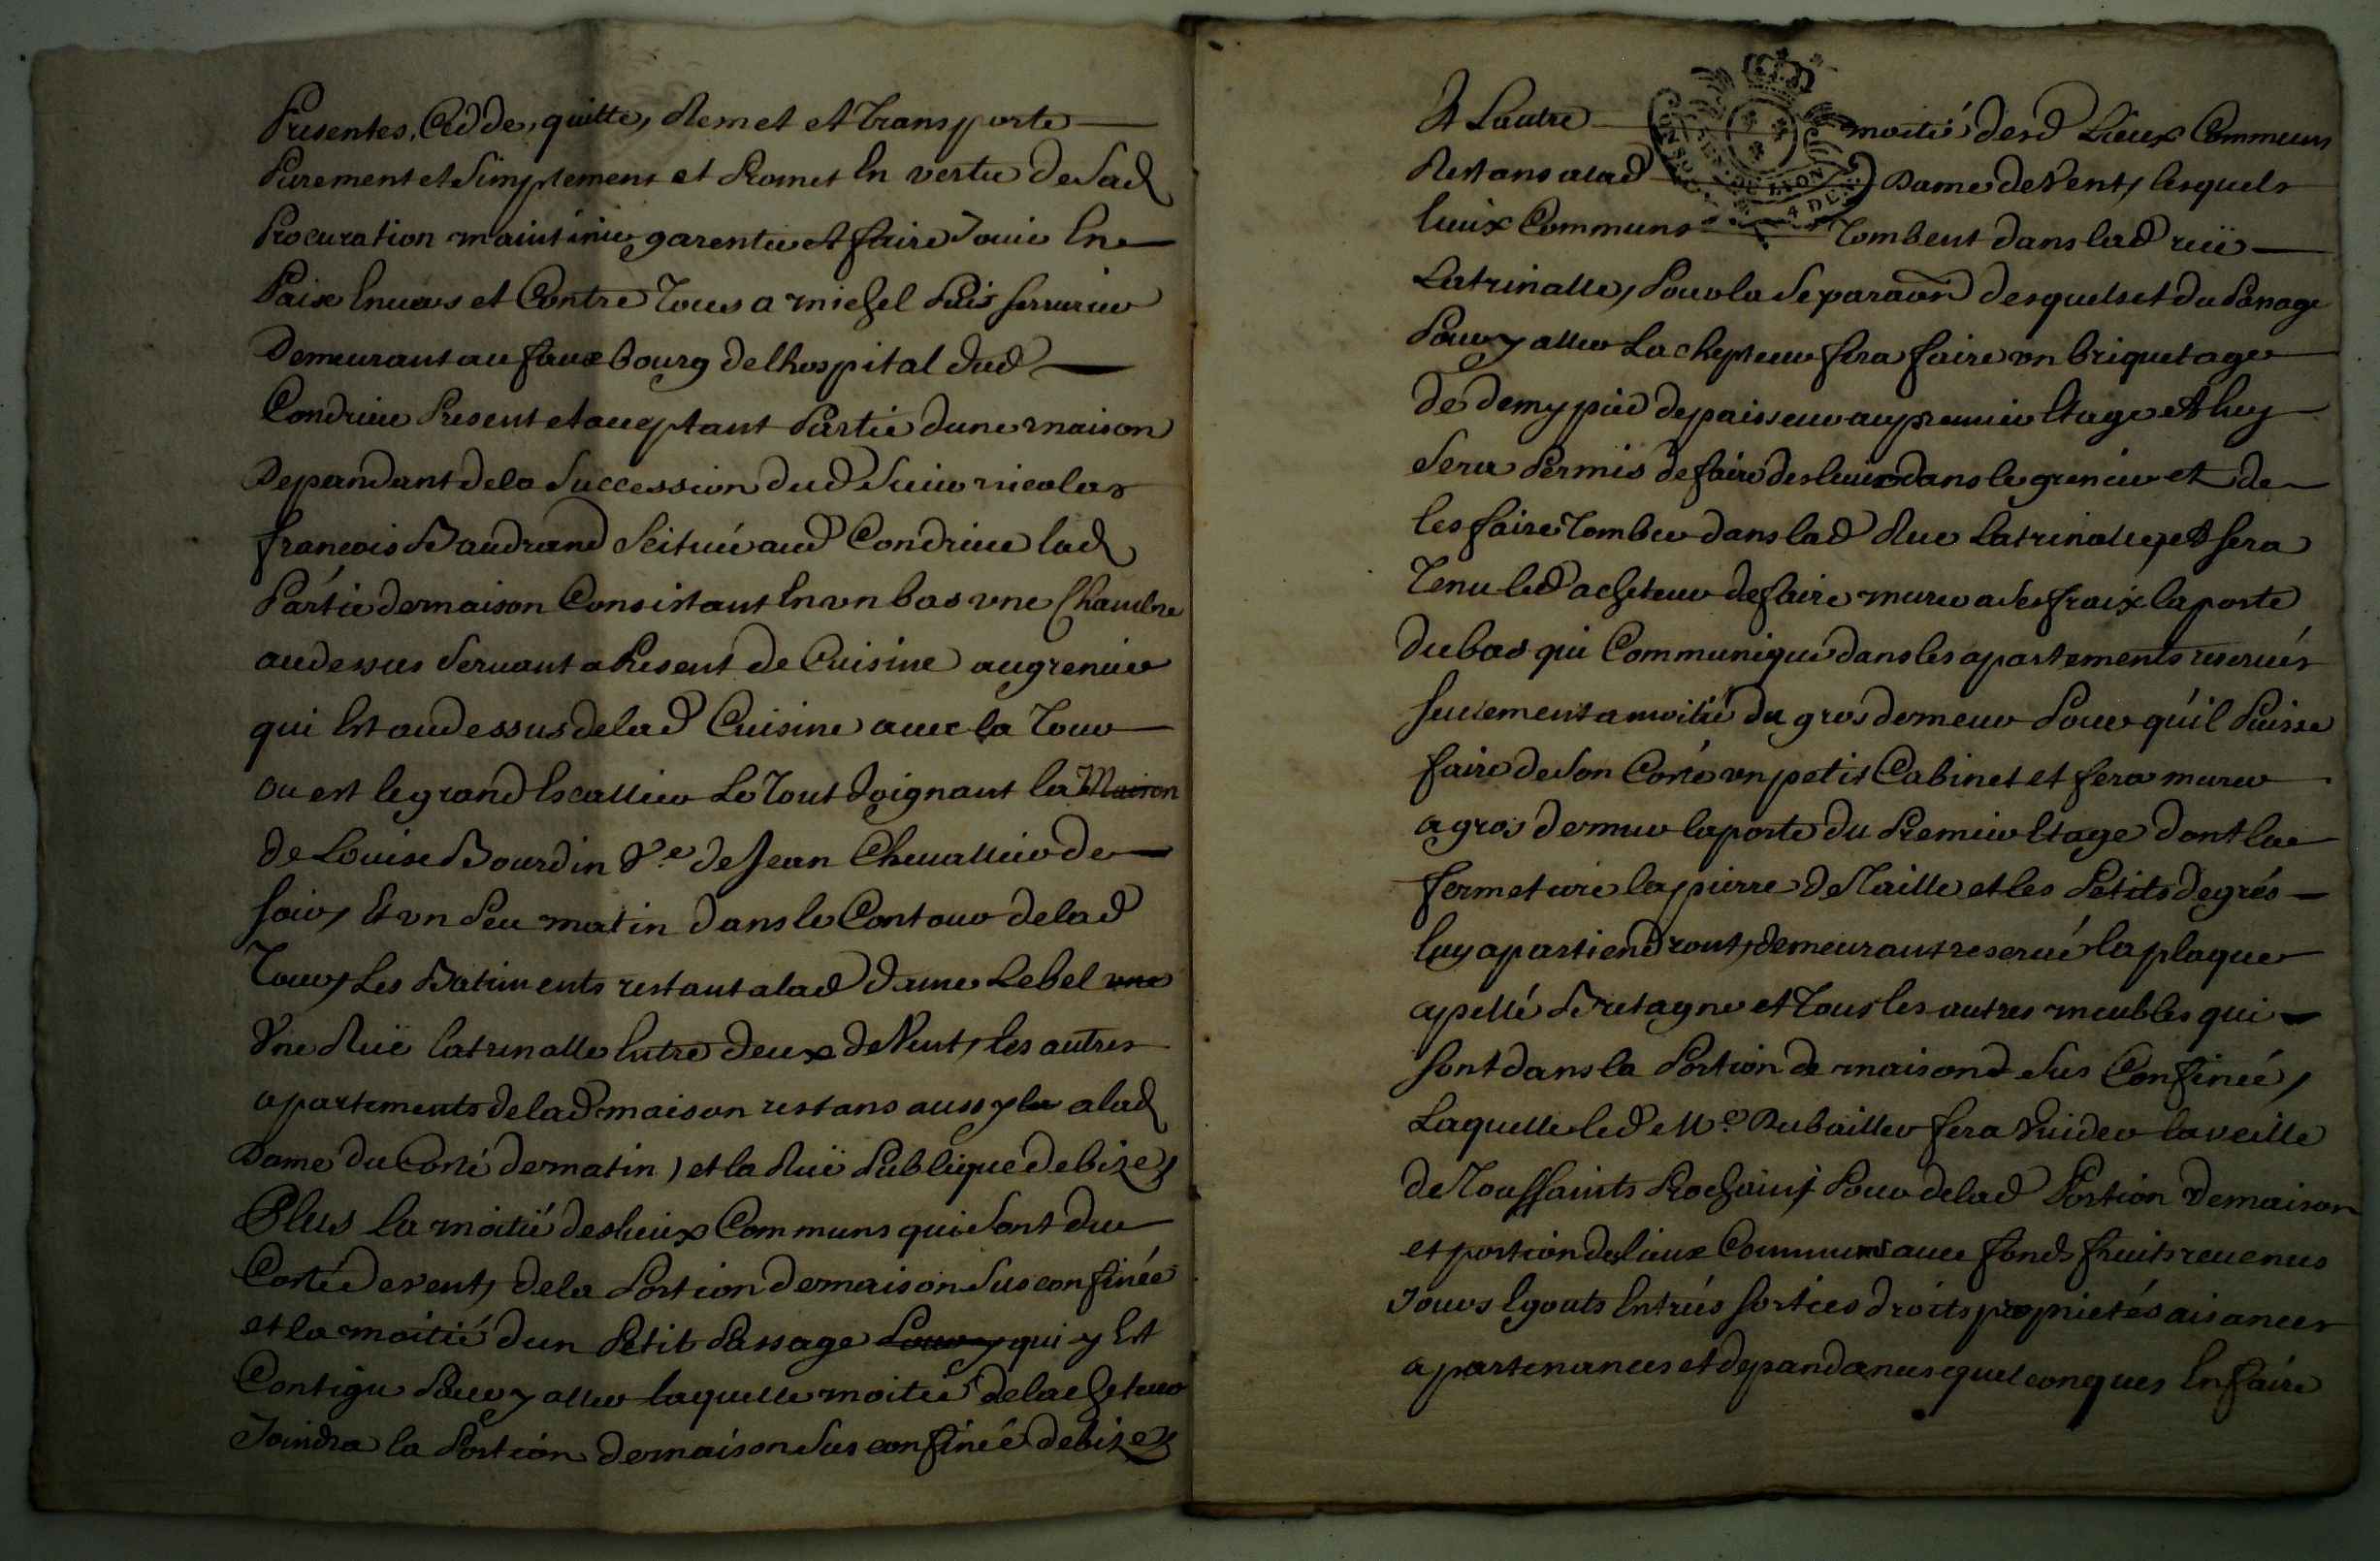 Presentes, Cedde, quitte, Remet et Transporte
Purement et Simplement et Promet En vertu de Sad
Procuration maintenir garentir et faire Jouir En
Paix Envers et Contre Tous a michel Puis serrurier
Demeurant au fauxbourg de lhospital dud
Condrieu Present et acceptant Partie dune maison
Depandant de la Succession dud Sieur nicolas
francois Baudrand Scituée aud Condrieu lad
Partie de maison Consistant En un bas une Chambre
au dessus Servant a Present de Cuisine au grenier
qui Est au dessus de lad Cuisine avec la Tour
ou est le grand Escallier Le Tout Joignant la Maison
de Louise Bourdin Ve de Jean Chevallier de
soir, Et un Peu matin dans le Contour de lad
Tour, Les Batiments restant a lad Dame Lebel une
Une Ruë latrinalle Entre deux de Vent, les autres
apartements de lad maison restans aussy la a lad
Dame du Costé de matin, et la Ruë Publique de bize,
Plus la moitié des lieux Communs qui sont du
Costé de vent, de la Portion de maison Sus confinée
et la moitié dun Petit Passage Pour y qui y Est
Contigu Pour y aller laquelle moitié de lacheteur
Joindra la Portion de maison Sus confinée de bize,
Et Lautre moitié desd Lieux Communs
Restans a lad Dame de Vent, lesquels
lieux Communs Tombent dans lad ruë
Latrinalle, Pour la Separaon desquels et du Passage
Pour y aller Lachepteur fera faire un briquetage
de demy pied depaisseur au premier Etage Et luy
Sera Permis de faire des lieux dans le grenier et de
les faire Tomber dans lad Rue Latrinalle, Et sera
Tenu led acheteur de faire murer a Ses fraix la porte
du bas qui Communique dans les apartements reservés
seulement a moitié du gros de meur Pour quil Puisse
faire de Son Costé un petit Cabinet et fera murer
a gros de mur la porte du Premier Etage dont la
fermeture la pierre de Taille et les Petits degrés
luy apartiendront, demeurant reservé la plaque
apellé Bretagne et Tous les autres meubles qui
sont dans la Portion de maison de Sus Confinée,
Laquelle led Me Dubailler fera Vuider la veille
de Toussaints Prochain, Pour de lad Portion de maison
et portion des lieux Communs avec fonds fruits revenus
Jours Egouts Entrées sorties droits proprietés aisances
apartenances et depandances quelconques En faire
GEN. DE LYON
4 DEN.